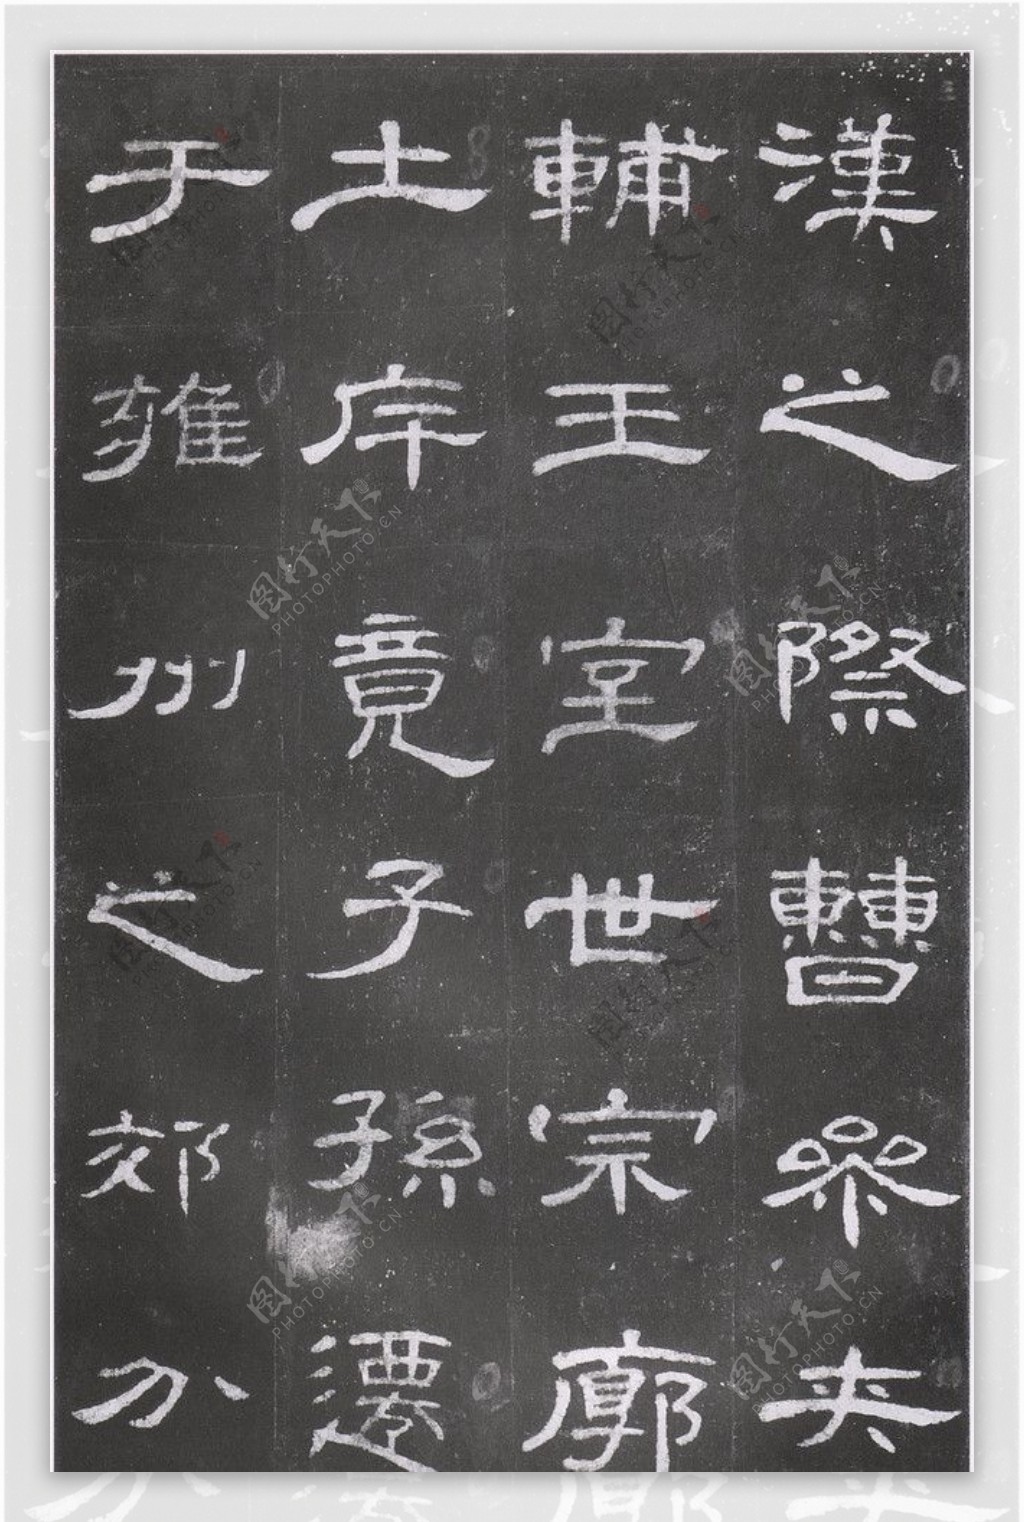 漢之際曹参夾
輔王室世宗廓
土斥竟子孫遷
于雍州之郊分
图行天下
PHOTOPHOTO.CN